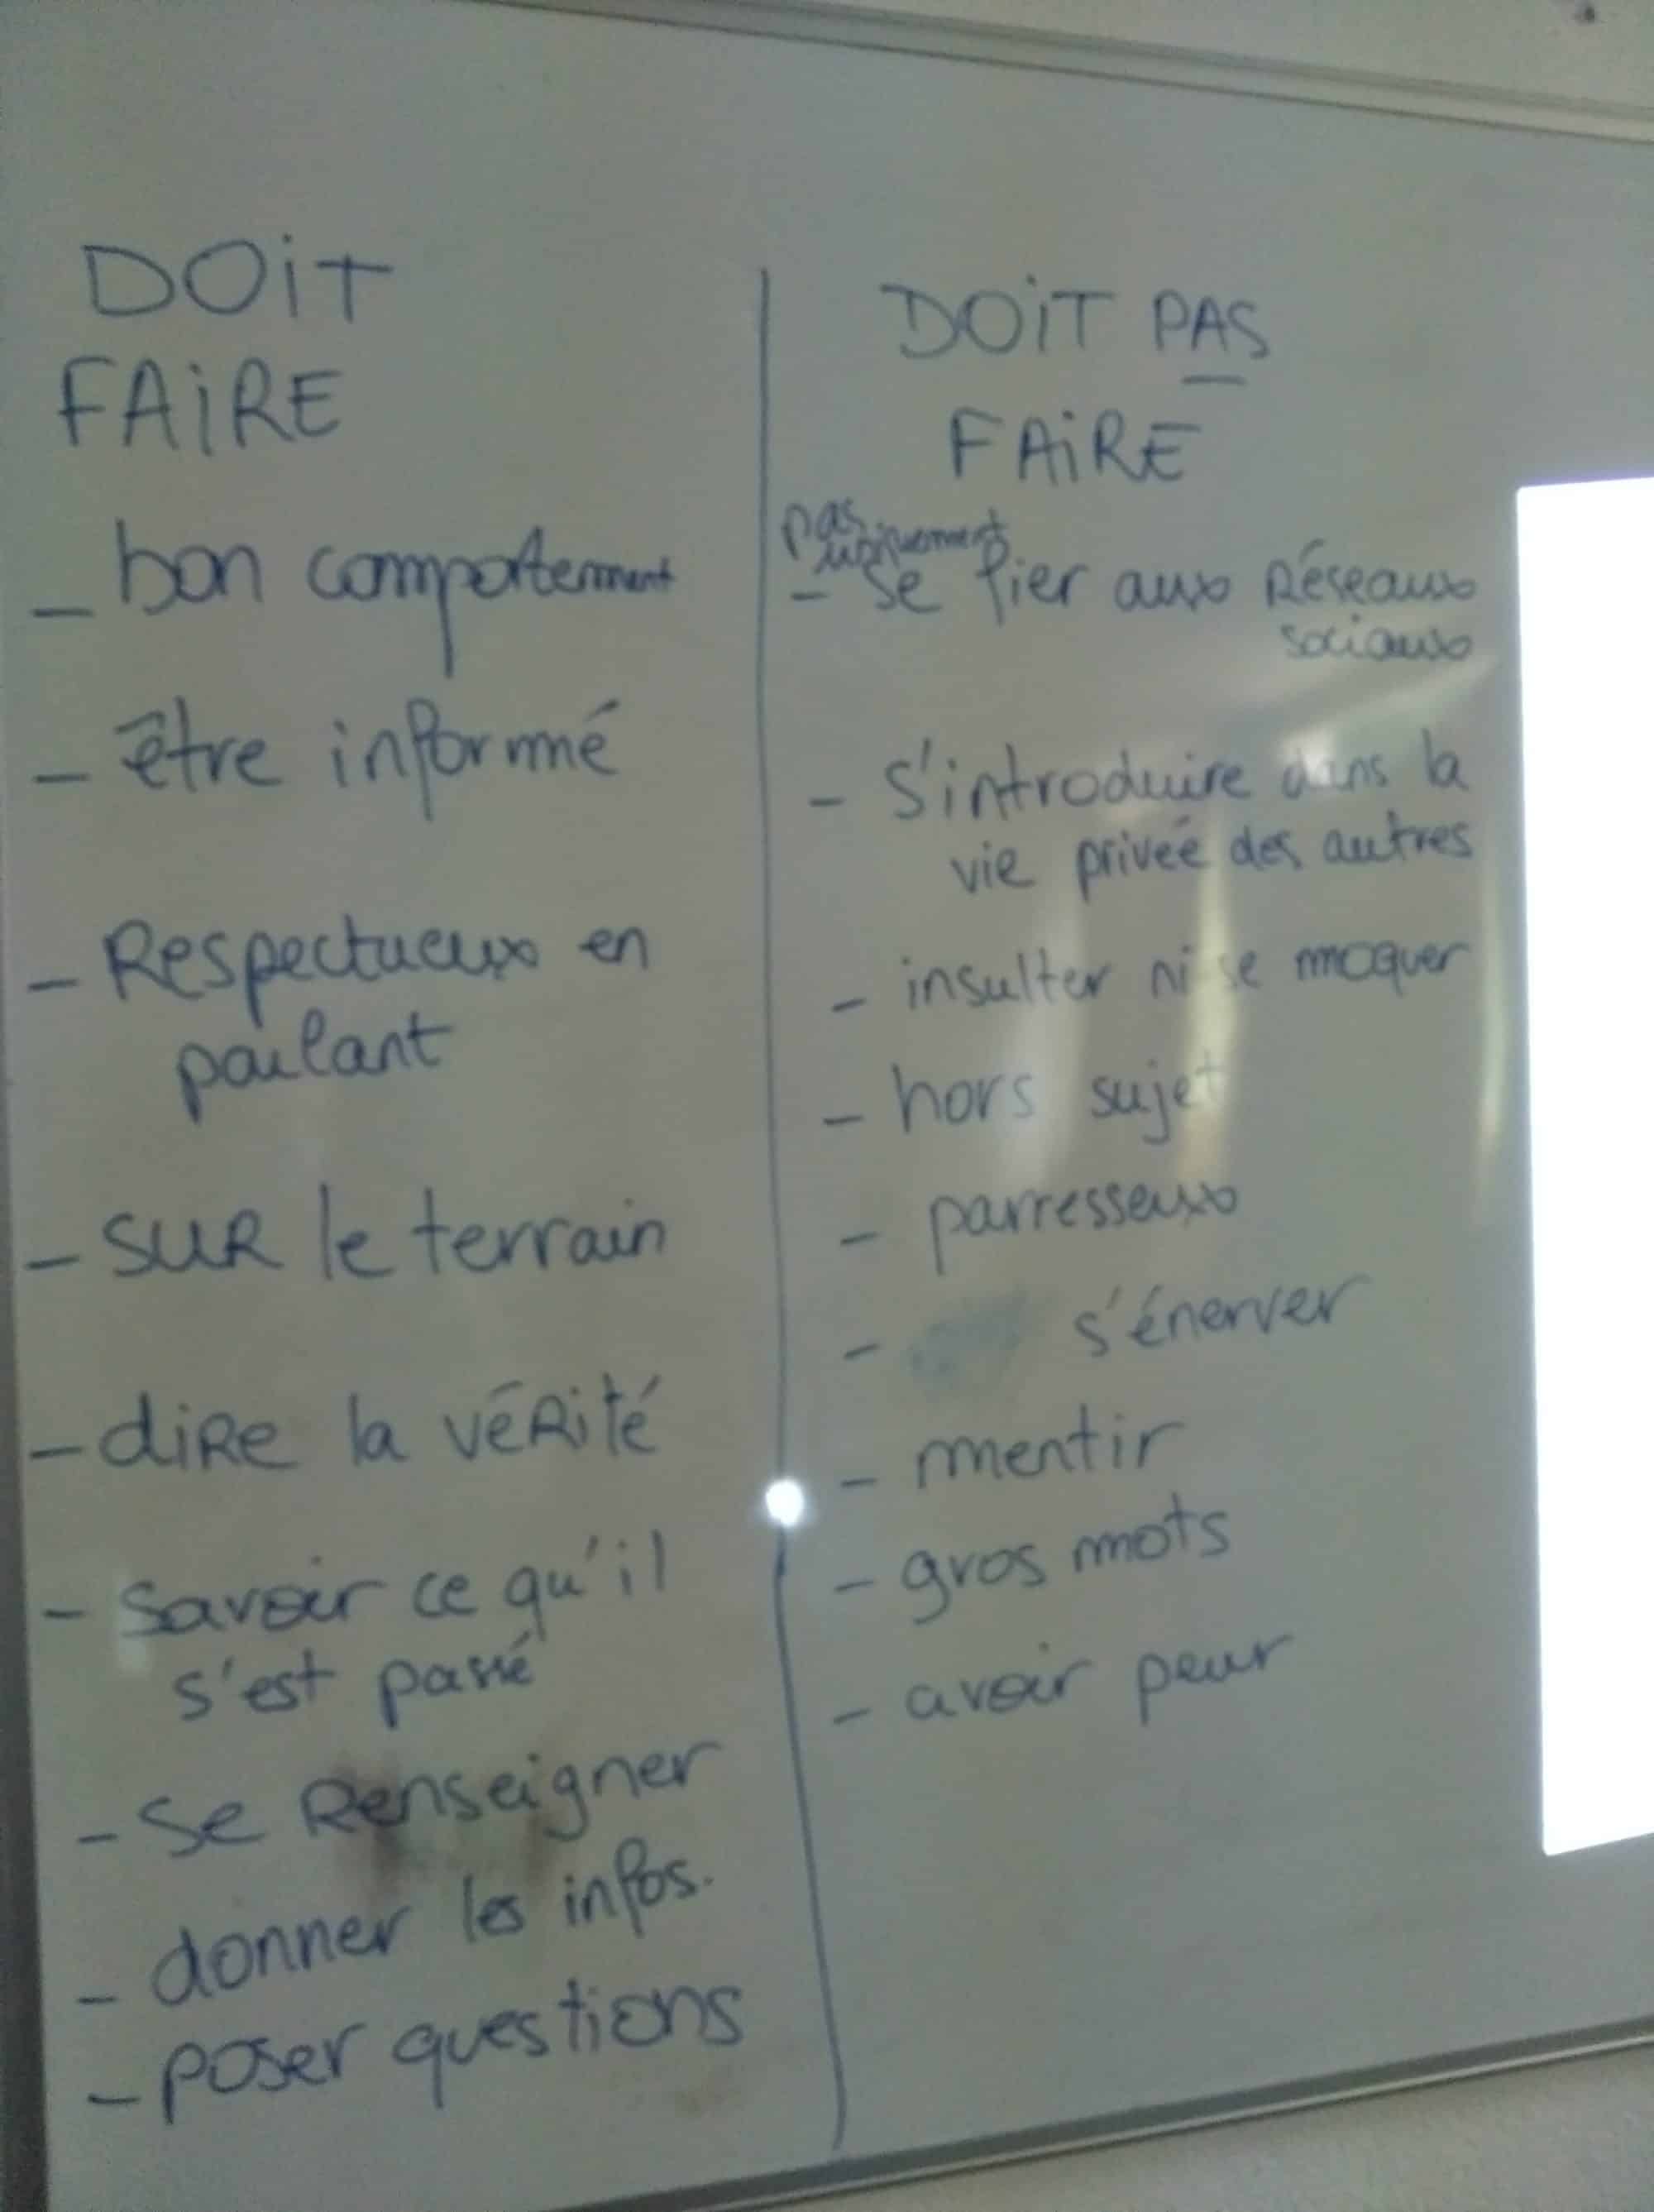 DOiT
FAiRE
- bon comportement
- être informé
- Respectueux en
parlant
- SUR le terrain
- diRe la véRité
- Savoir ce qu'il
s'est passé
- Se Renseigner
- donner les infos.
- poser questions
DOiT PAS
FAiRE
pas
uniquement
- se fier aux Réseaux
sociaux
- S'introduire dans la
vie privée des autres
- insulter ni se moquer
- hors sujet
- parresseux
- s'énerver
- mentir
- gros mots
- avoir peur